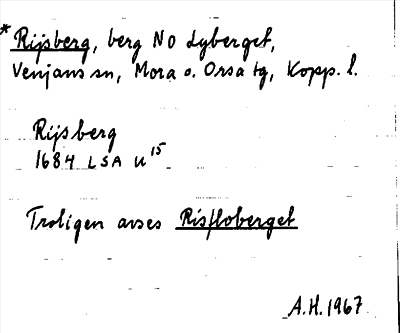 * Rijsberg, berg NO Lyberget,
Venjans sn, Mora o. Orsa tg, Kopp. l.
Rijsberg
1684 LSA U 15
Troligen avses Risfloberget
A.H. 1967